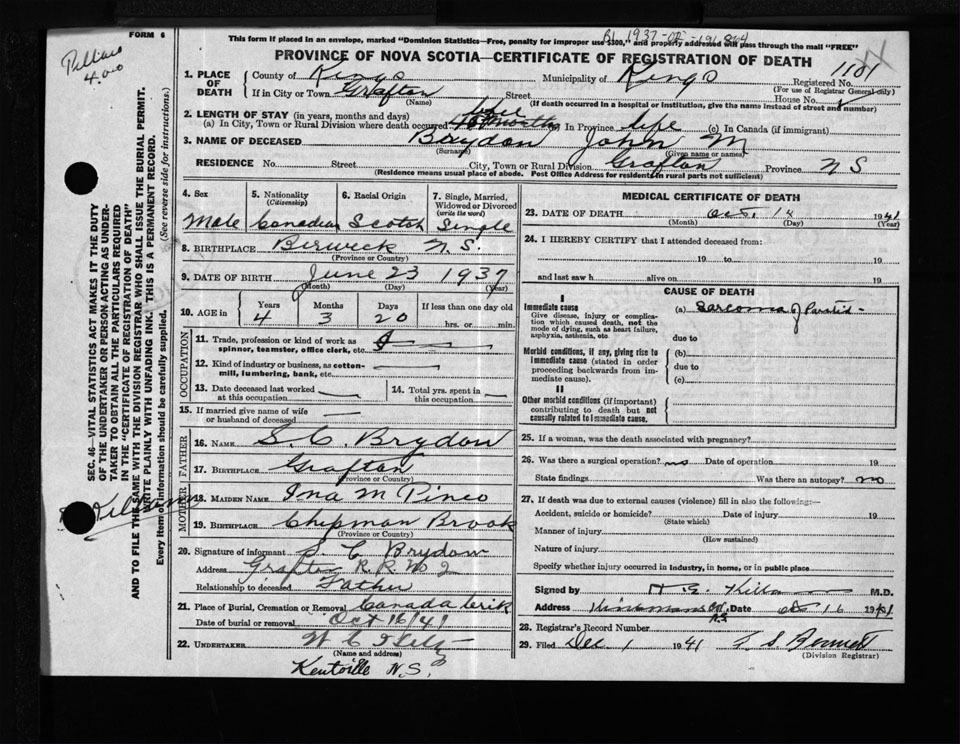 FORM 6
400
BL 1937-02-191864
This form if placed in an envelope, marked "Dominion Statistics—Free, penalty for improper use $300," and properly addressed will pass through the mail "FREE"
PROVINCE OF NOVA SCOTIA—CERTIFICATE OF REGISTRATION OF DEATH
1. PLACE OF DEATH County of Kings Municipality of Kings Registered No. 1101
(For use of Registrar General only)
If in City or Town Grafton Street House No.
(Name) (If death occurred in a hospital or institution, give the name instead of street and number)
2. LENGTH OF STAY (in years, months and days)
(a) In City, Town or Rural Division where death occurred life (b) In Province life (c) In Canada (if immigrant)
3. NAME OF DECEASED Brydon John M
(Surname) (Given name or names)
RESIDENCE No. Street City, Town or Rural Division Grafton Province N S
(Residence means usual place of abode. Post Office Address for residents in rural parts not sufficient)
4. Sex Male
5. Nationality (Citizenship) Canadian
6. Racial Origin Scotch
7. Single, Married, Widowed or Divorced (write the word) Single
8. BIRTHPLACE Berwick N.S.
(Province or Country)
9. DATE OF BIRTH June 23 1937
(Month) (Day) (Year)
10. AGE in Years 4 Months 3 Days 20 If less than one day old hrs. or min.
OCCUPATION
11. Trade, profession or kind of work as spinner, teamster, office clerk, etc.
12. Kind of industry or business, as cotton-mill, lumbering, bank, etc.
13. Date deceased last worked at this occupation
14. Total yrs. spent in this occupation
15. If married give name of wife or husband of deceased
FATHER
16. NAME S. C. Brydon
17. BIRTHPLACE Grafton
(Province or Country)
MOTHER
18. MAIDEN NAME Ina M Pineo
19. BIRTHPLACE Chipman Brook
(Province or Country)
20. Signature of informant S. C. Brydon
Address Grafton R.R. No 2
Relationship to deceased Father
21. Place of Burial, Cremation or Removal Canada Crik
Date of burial or removal Oct 16/41
22. UNDERTAKER W C
(Name and address)
Kentville N.S.
MEDICAL CERTIFICATE OF DEATH
23. DATE OF DEATH Oct. 1941
(Month) (Day) (Year)
24. I HEREBY CERTIFY that I attended deceased from:
19 to 19
and last saw h alive on 19
CAUSE OF DEATH
I
Immediate cause
Give disease, injury or complication which caused death, not the mode of dying, such as heart failure, asphyxia, asthenia, etc.
(a) Sarcoma of Parotid
due to
Morbid conditions, if any, giving rise to immediate cause (stated in order proceeding backwards from immediate cause).
(b)
due to
(c)
II
Other morbid conditions (if important) contributing to death but not causally related to immediate cause.
25. If a woman, was the death associated with pregnancy?
26. Was there a surgical operation? no Date of operation 19
State findings Was there an autopsy? no
27. If death was due to external causes (violence) fill in also the following:—
Accident, suicide or homicide? Date of injury 19
(State which)
Manner of injury
(How sustained)
Nature of injury
Specify whether injury occurred in industry, in home, or in public place
Signed by M.D.
Address Date Oct 16 1941
N.S.
28. Registrar's Record Number
29. Filed Dec 1 1941 Bennett
(Division Registrar)
SEC. 46—VITAL STATISTICS ACT MAKES IT THE DUTY
OF THE UNDERTAKER OR PERSON ACTING AS UNDER-
TAKER TO OBTAIN ALL THE PARTICULARS REQUIRED
IN THE "CERTIFICATE OF REGISTRATION OF DEATH"
AND TO FILE THE SAME WITH THE DIVISION REGISTRAR WHO SHALL ISSUE THE BURIAL PERMIT.
WRITE PLAINLY WITH UNFADING INK. THIS IS A PERMANENT RECORD.
Every Item of Information should be carefully supplied. (See reverse side for instructions.)